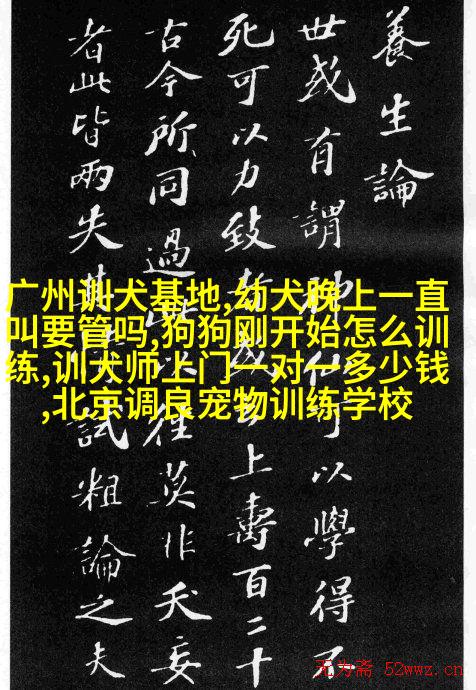 養生論
世或有謂神仙可以學得不
死可以力致者或云上壽百二十
古今所同過此以往莫非夭妄
者此皆兩失其情試粗論之夫
广州训犬基地,幼犬晚上一直
叫要管吗,狗狗刚开始怎么训
练,训犬师上门一对一多少钱
,北京调良宠物训练学校
无为斋 52wwz.cn